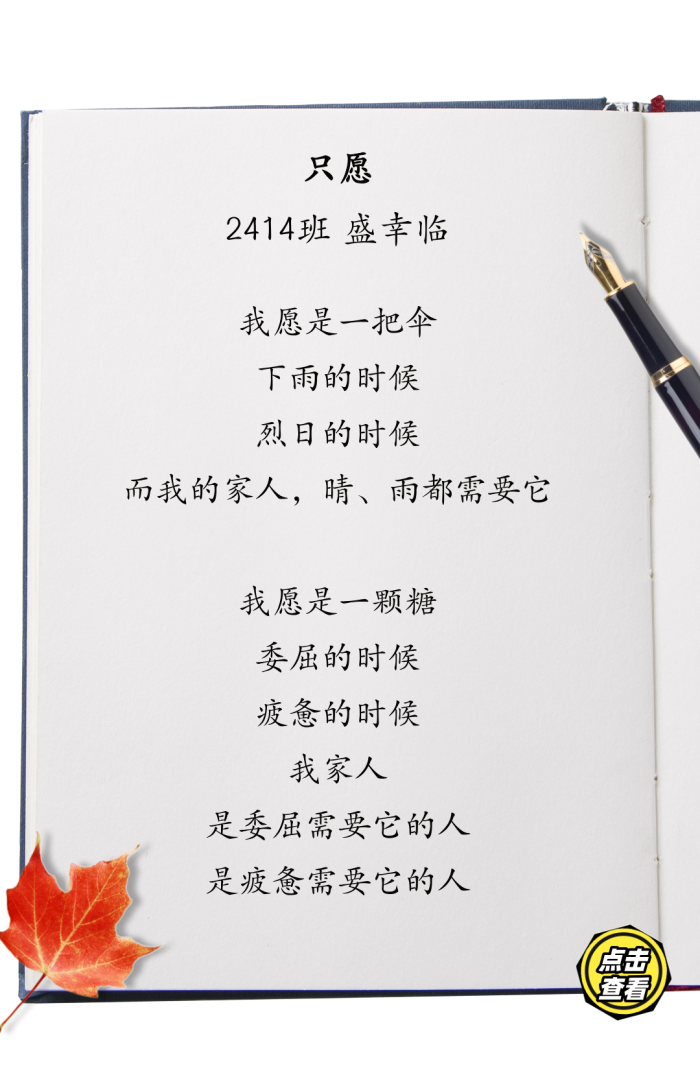 只愿
2414班 盛幸临
我愿是一把伞
下雨的时候
烈日的时候
而我的家人，晴、雨都需要它
我愿是一颗糖
委屈的时候
疲惫的时候
我家人
是委屈需要它的人
是疲惫需要它的人
点击
查看